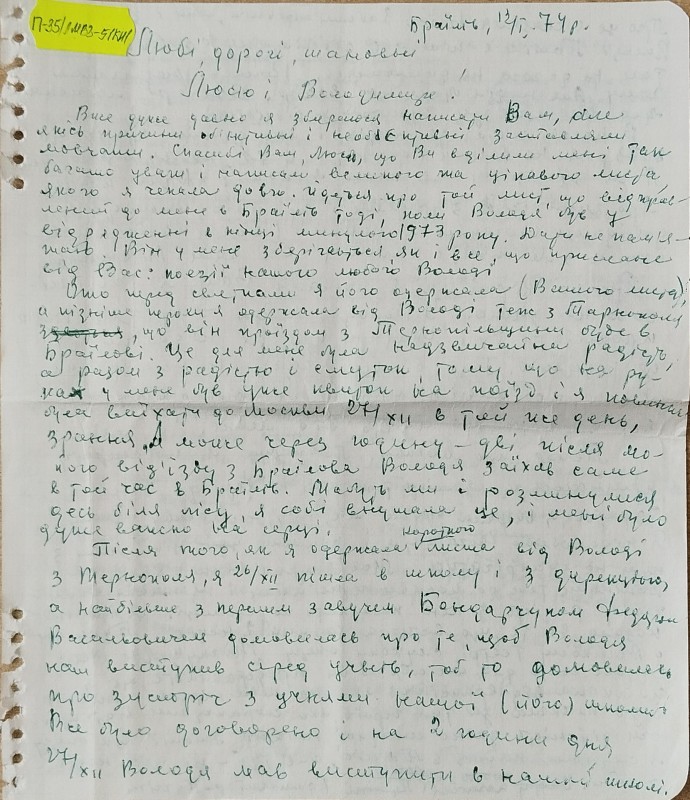 П-35/ЛМВЗ-51/КН
Браїлів, 12/I, 74р.
Любі, дорогі, шановні
Люсю і Володимире!
Вже дуже давно я збиралася написати Вам, але
якісь причини об'єктивні і необ'єктивні заставляли
мовчати. Спасибі Вам, Люсю, що Ви вділили мені так
багато уваги і написали великого та цікавого листа
якого я чекала довго. Йдеться про той лист, що відправ-
лений до мене в Браїлів тоді, коли Володя був у
відрядженні в кінці минулого 1973 року. Дати не пам'я-
таю. Він у мене зберігається, як і все, що прислане
від Вас: поезії нашого любого Володі
Ото перед святками я його одержала (Вашого листа),
а пізніше трохи я одержала від Володі теж з Тернополя
що він проїздом з Тернопільщини буде в
Браїлові. Це для мене була надзвичайна радість,
а разом з радістю і смуток, тому що на ру-
ках у мене був уже квиток на поїзд і я повинна
була виїхати до Москви 27/XII в той же день,
зрання. А може через годину – дві після мо-
його від'їзду з Браїлова Володя заїхав саме
в той час в Браїлів. Мабуть ми і розминулися
десь біля лісу, я собі внушала це, і мені було
дуже важко на серці.
Після того, як я одержала короткого листа від Володі
з Тернополя, я 26/XII пішла в школу і з директором,
а найбільше з першим завучем Бондарчуком Федором
Васильовичем домовилась про те, щоб Володя
нам виступив серед учнів, тобто домовились
про зустріч з учнями нашої (його) школи.
Все було договорено і на 2 години дня
27/XII Володя мав виступити в нашій школі.